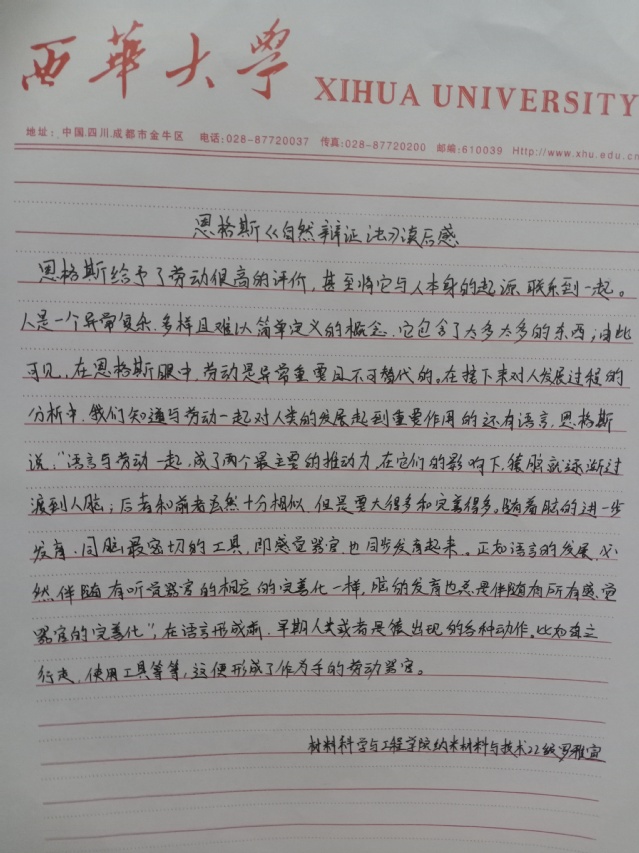 西華大学 XIHUA UNIVERSITY
地址：中国.四川.成都市金牛区 电话:028-87720037 传真:028-87720200 邮编:610039 Http://www.xhu.edu.cn
恩格斯《自然辩证法》读后感
恩格斯给予了劳动很高的评价，甚至将它与人本身的起源联系到一起。
人是一个异常复杂、多样且难以简单定义的概念，它包含了太多太多的东西；由此
可见，在恩格斯眼中，劳动是异常重要且不可替代的。在接下来对人发展过程的
分析中，我们知道与劳动一起对人类的发展起到重要作用的还有语言，恩格斯
说：“语言与劳动一起，成了两个最主要的推动力，在它们的影响下，猿脑就逐渐过
渡到人脑；后者和前者虽然十分相似，但是要大得多和完善得多。随着脑的进一步
发育，同脑最密切的工具，即感觉器官，也同步发育起来。正如语言的发展，必
然伴随有听觉器官的相应的完善化一样，脑的发育也总是伴随有所有感觉
器官的完善化”，在语言形成前，早期人类或者是猿出现的各种动作。比如直立
行走，使用工具等等，这便形成了作为手的劳动器官。
材料科学与工程学院纳米材料与技术22级罗雅宣